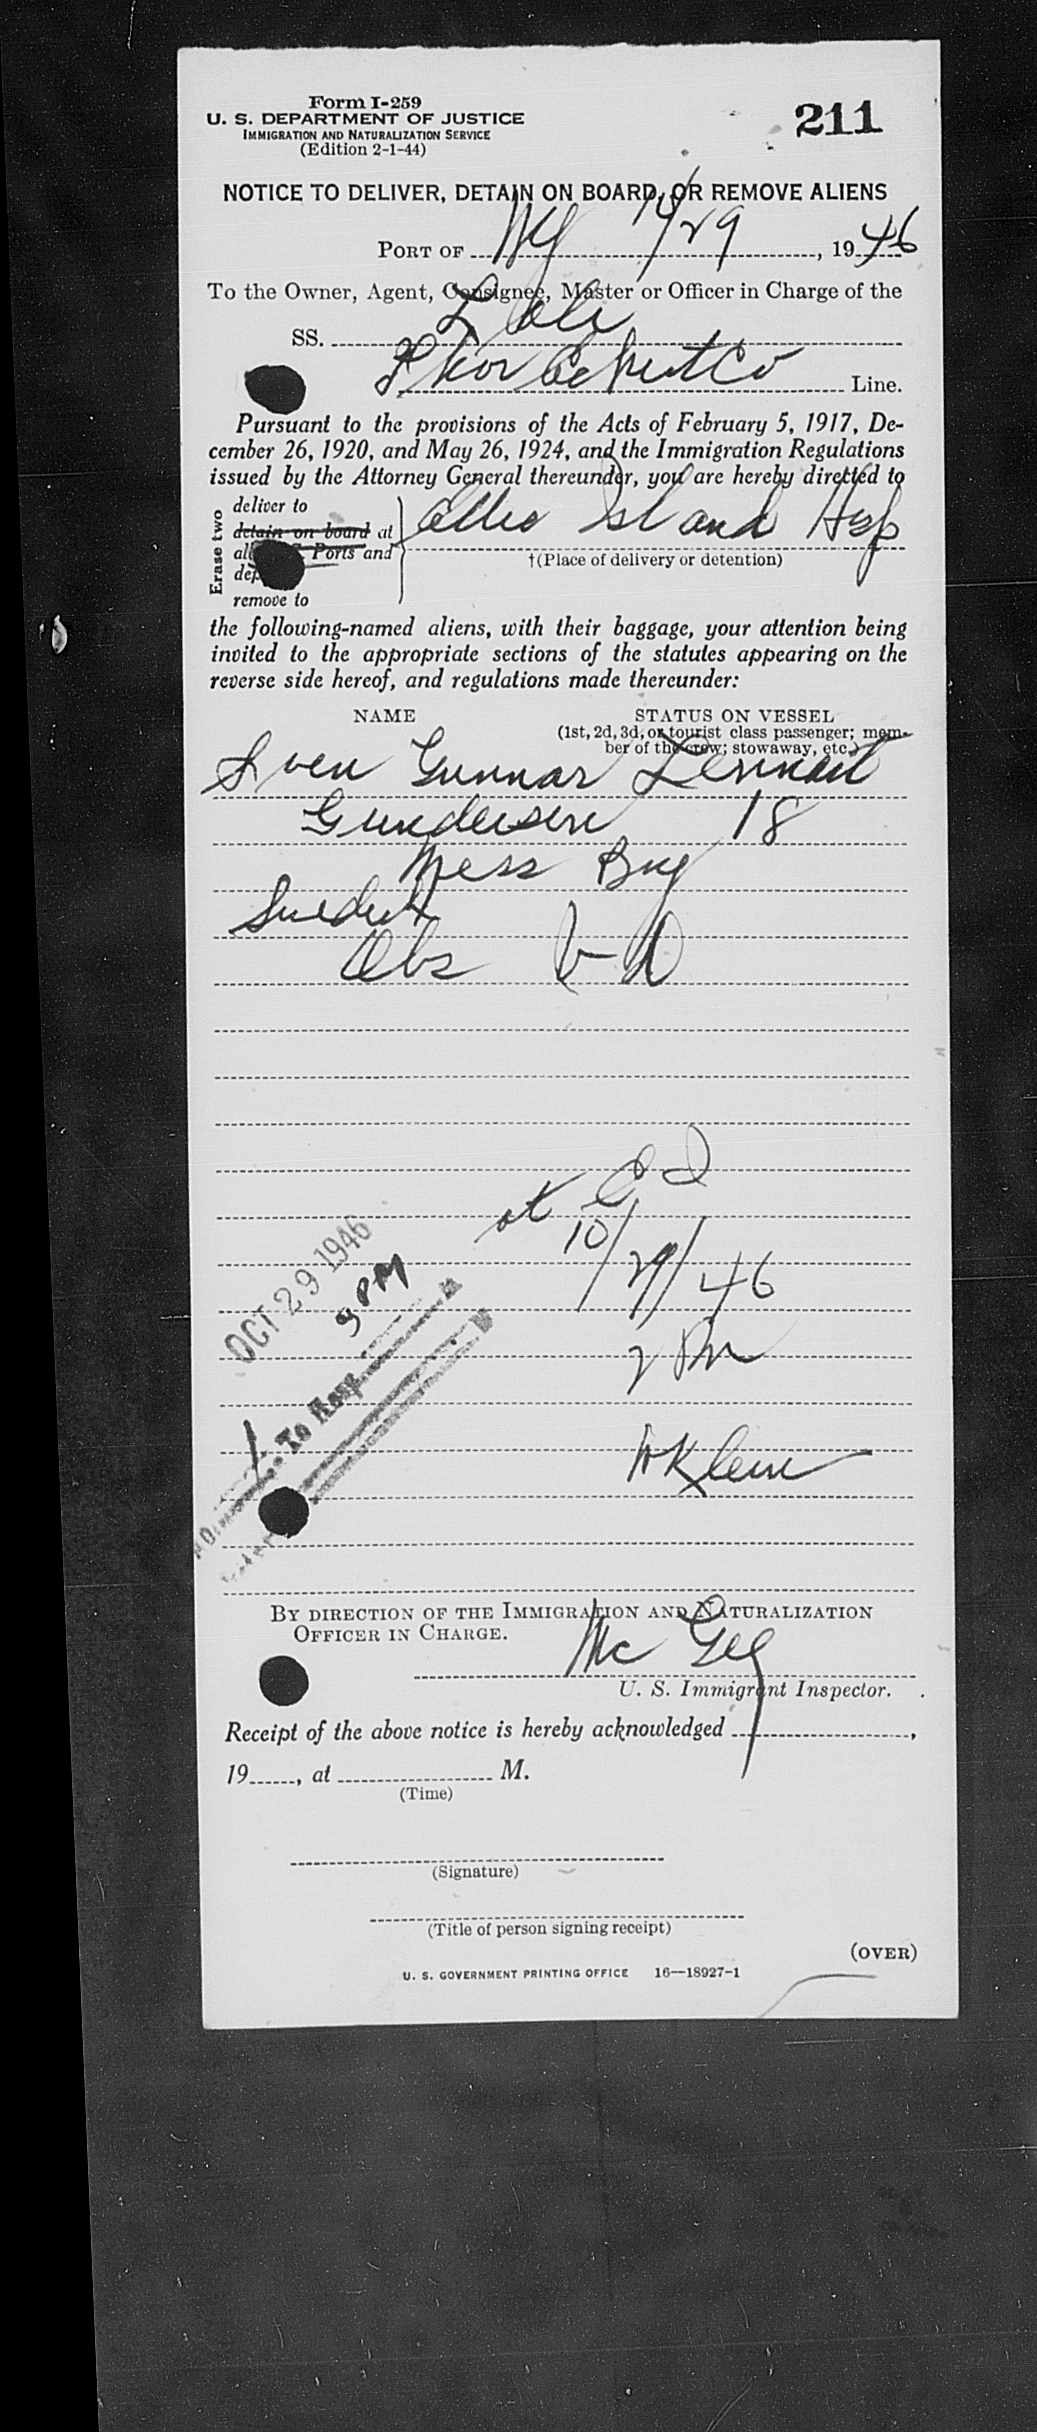 Form I-259
U. S. DEPARTMENT OF JUSTICE
IMMIGRATION AND NATURALIZATION SERVICE
(Edition 2-1-44)
211
NOTICE TO DELIVER, DETAIN ON BOARD, OR REMOVE ALIENS
PORT OF NY 10/29, 1946
To the Owner, Agent, Consignee, Master or Officer in Charge of the
SS.
Thor Co Line.
Pursuant to the provisions of the Acts of February 5, 1917, De-
cember 26, 1920, and May 26, 1924, and the Immigration Regulations
issued by the Attorney General thereunder, you are hereby directed to
Erase two
deliver to
detain on board at
all Ports and
remove to
Ellis Island Hsp
†(Place of delivery or detention)
the following-named aliens, with their baggage, your attention being
invited to the appropriate sections of the statutes appearing on the
reverse side hereof, and regulations made thereunder:
NAME STATUS ON VESSEL
(1st, 2d, 3d, or tourist class passenger; mem-
ber of the crew; stowaway, etc.)
Sven Gunnar Lennart
Gundersen 18
Mess Boy
Swedish
Obs V-D
at E I
10/29/46
2 PM
OCT 29 1946
9 PM
1 To Hosp.
NO.
W Klein
BY DIRECTION OF THE IMMIGRATION AND NATURALIZATION
OFFICER IN CHARGE.
Mc Gey
U. S. Immigrant Inspector.
Receipt of the above notice is hereby acknowledged ,
19 , at M.
(Time)
(Signature)
(Title of person signing receipt)
(OVER)
U. S. GOVERNMENT PRINTING OFFICE 16—18927-1